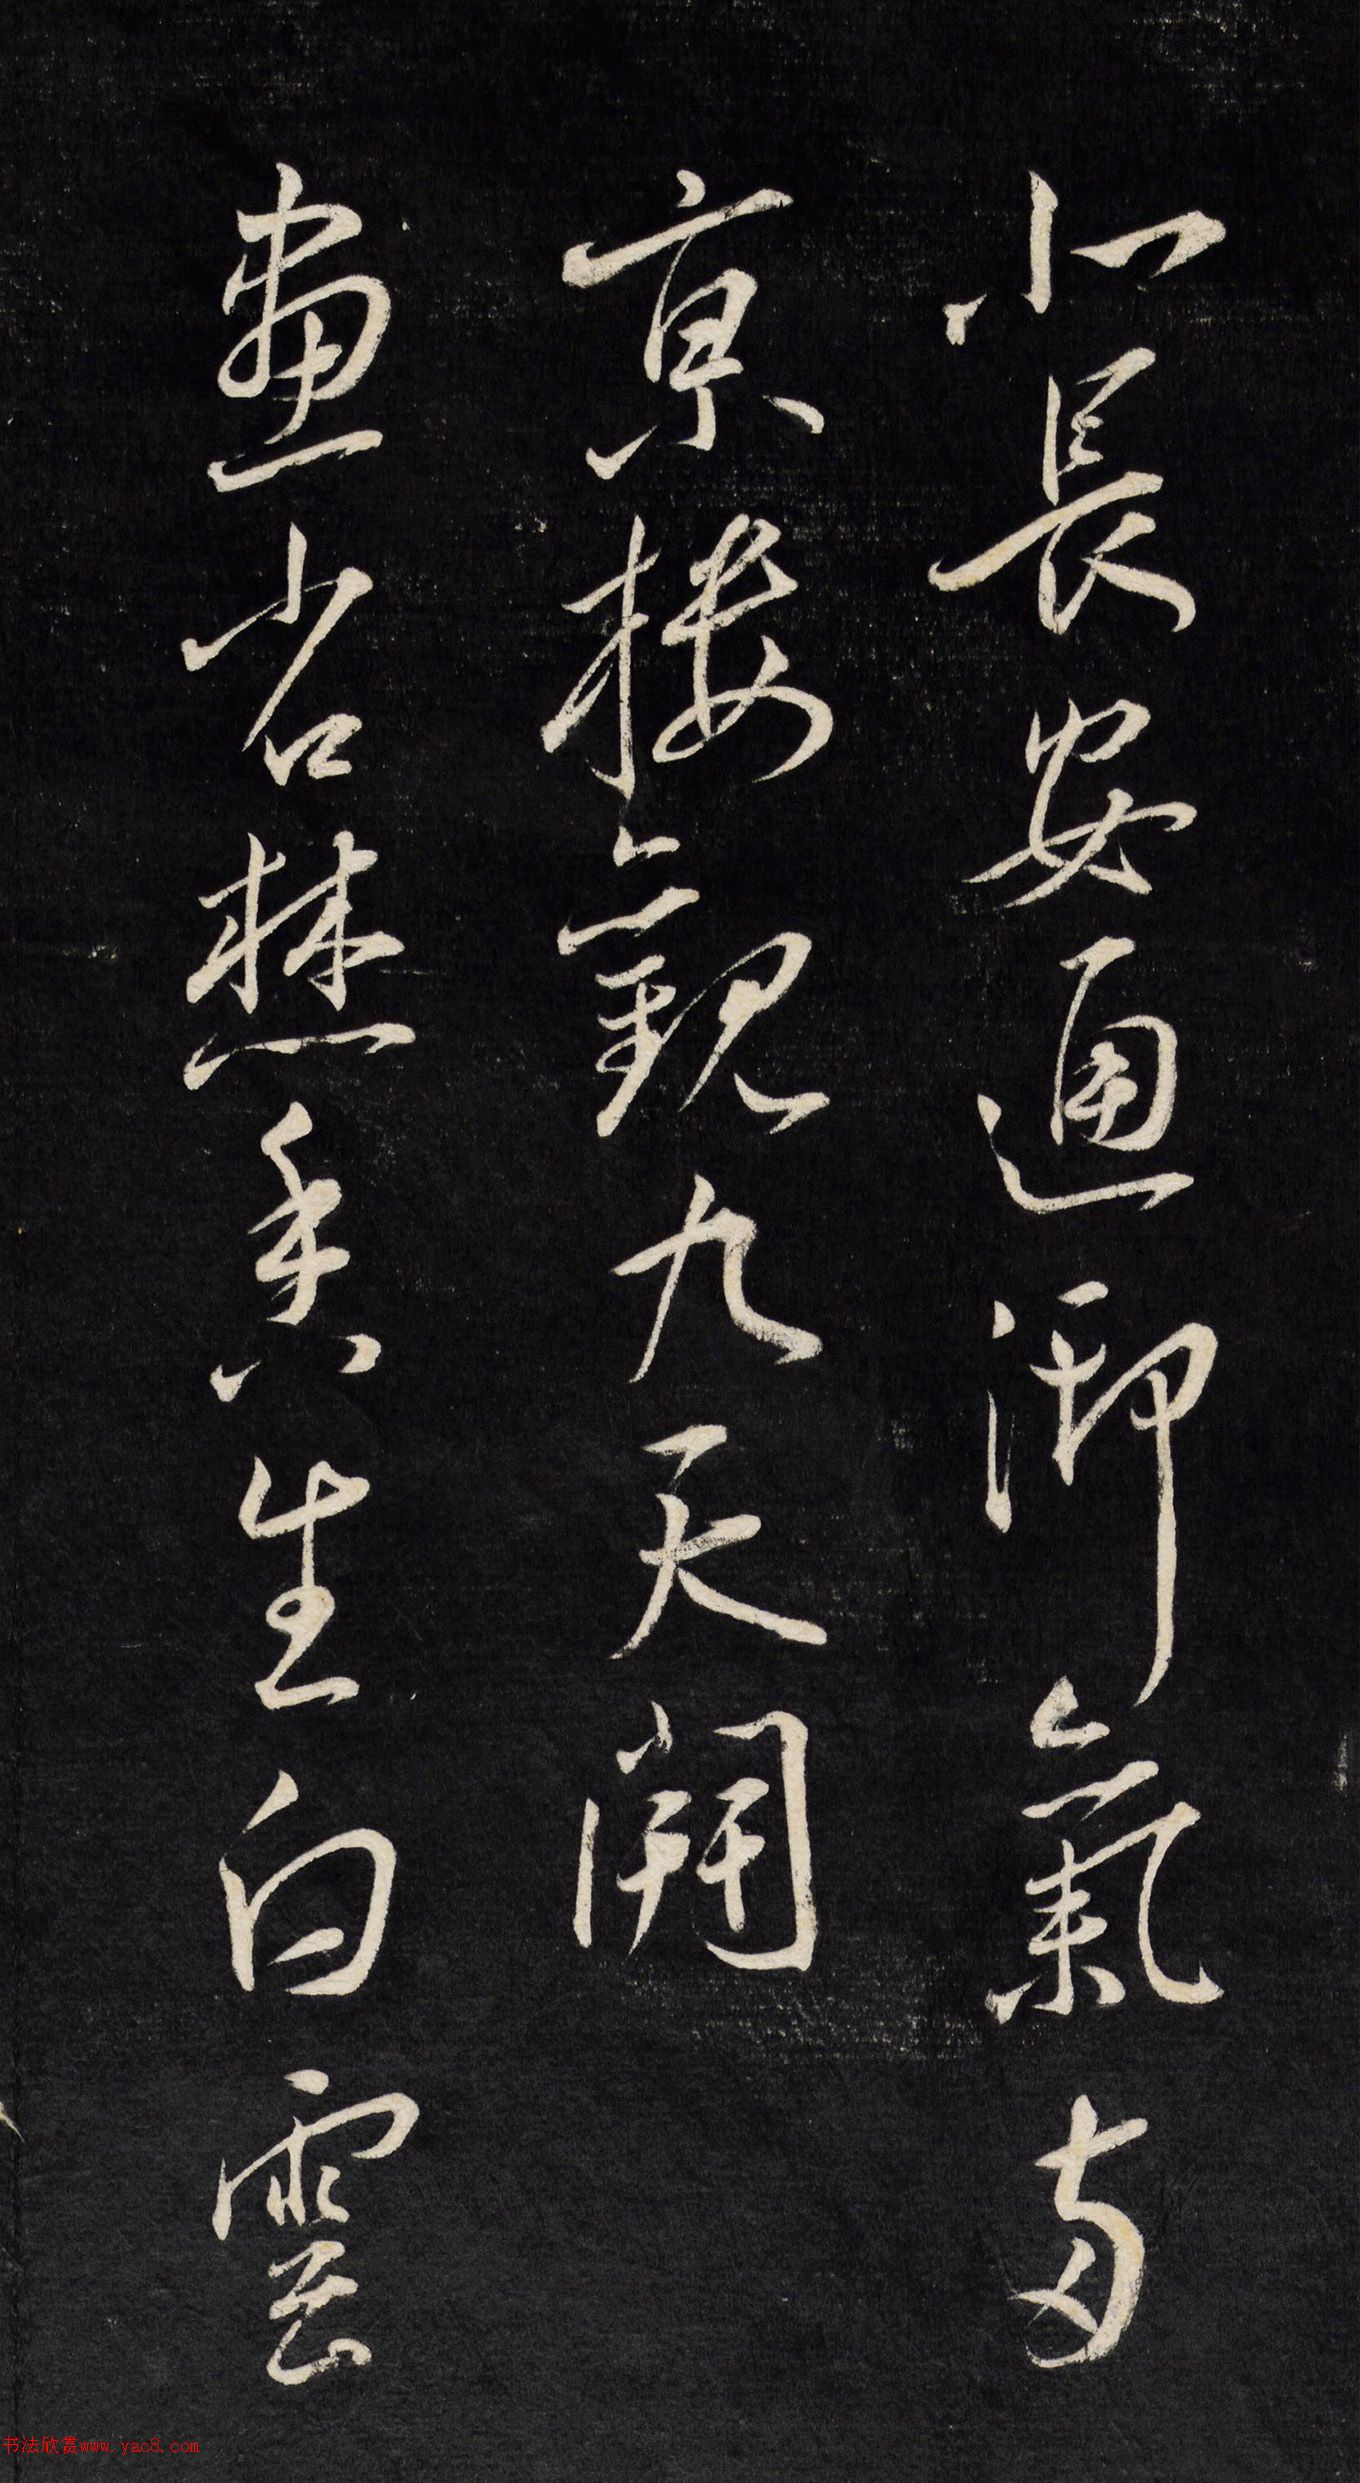 北長安通御氣兩
京樓觀九天開
畫省焚香生白雲
书法欣赏www.yac8.com